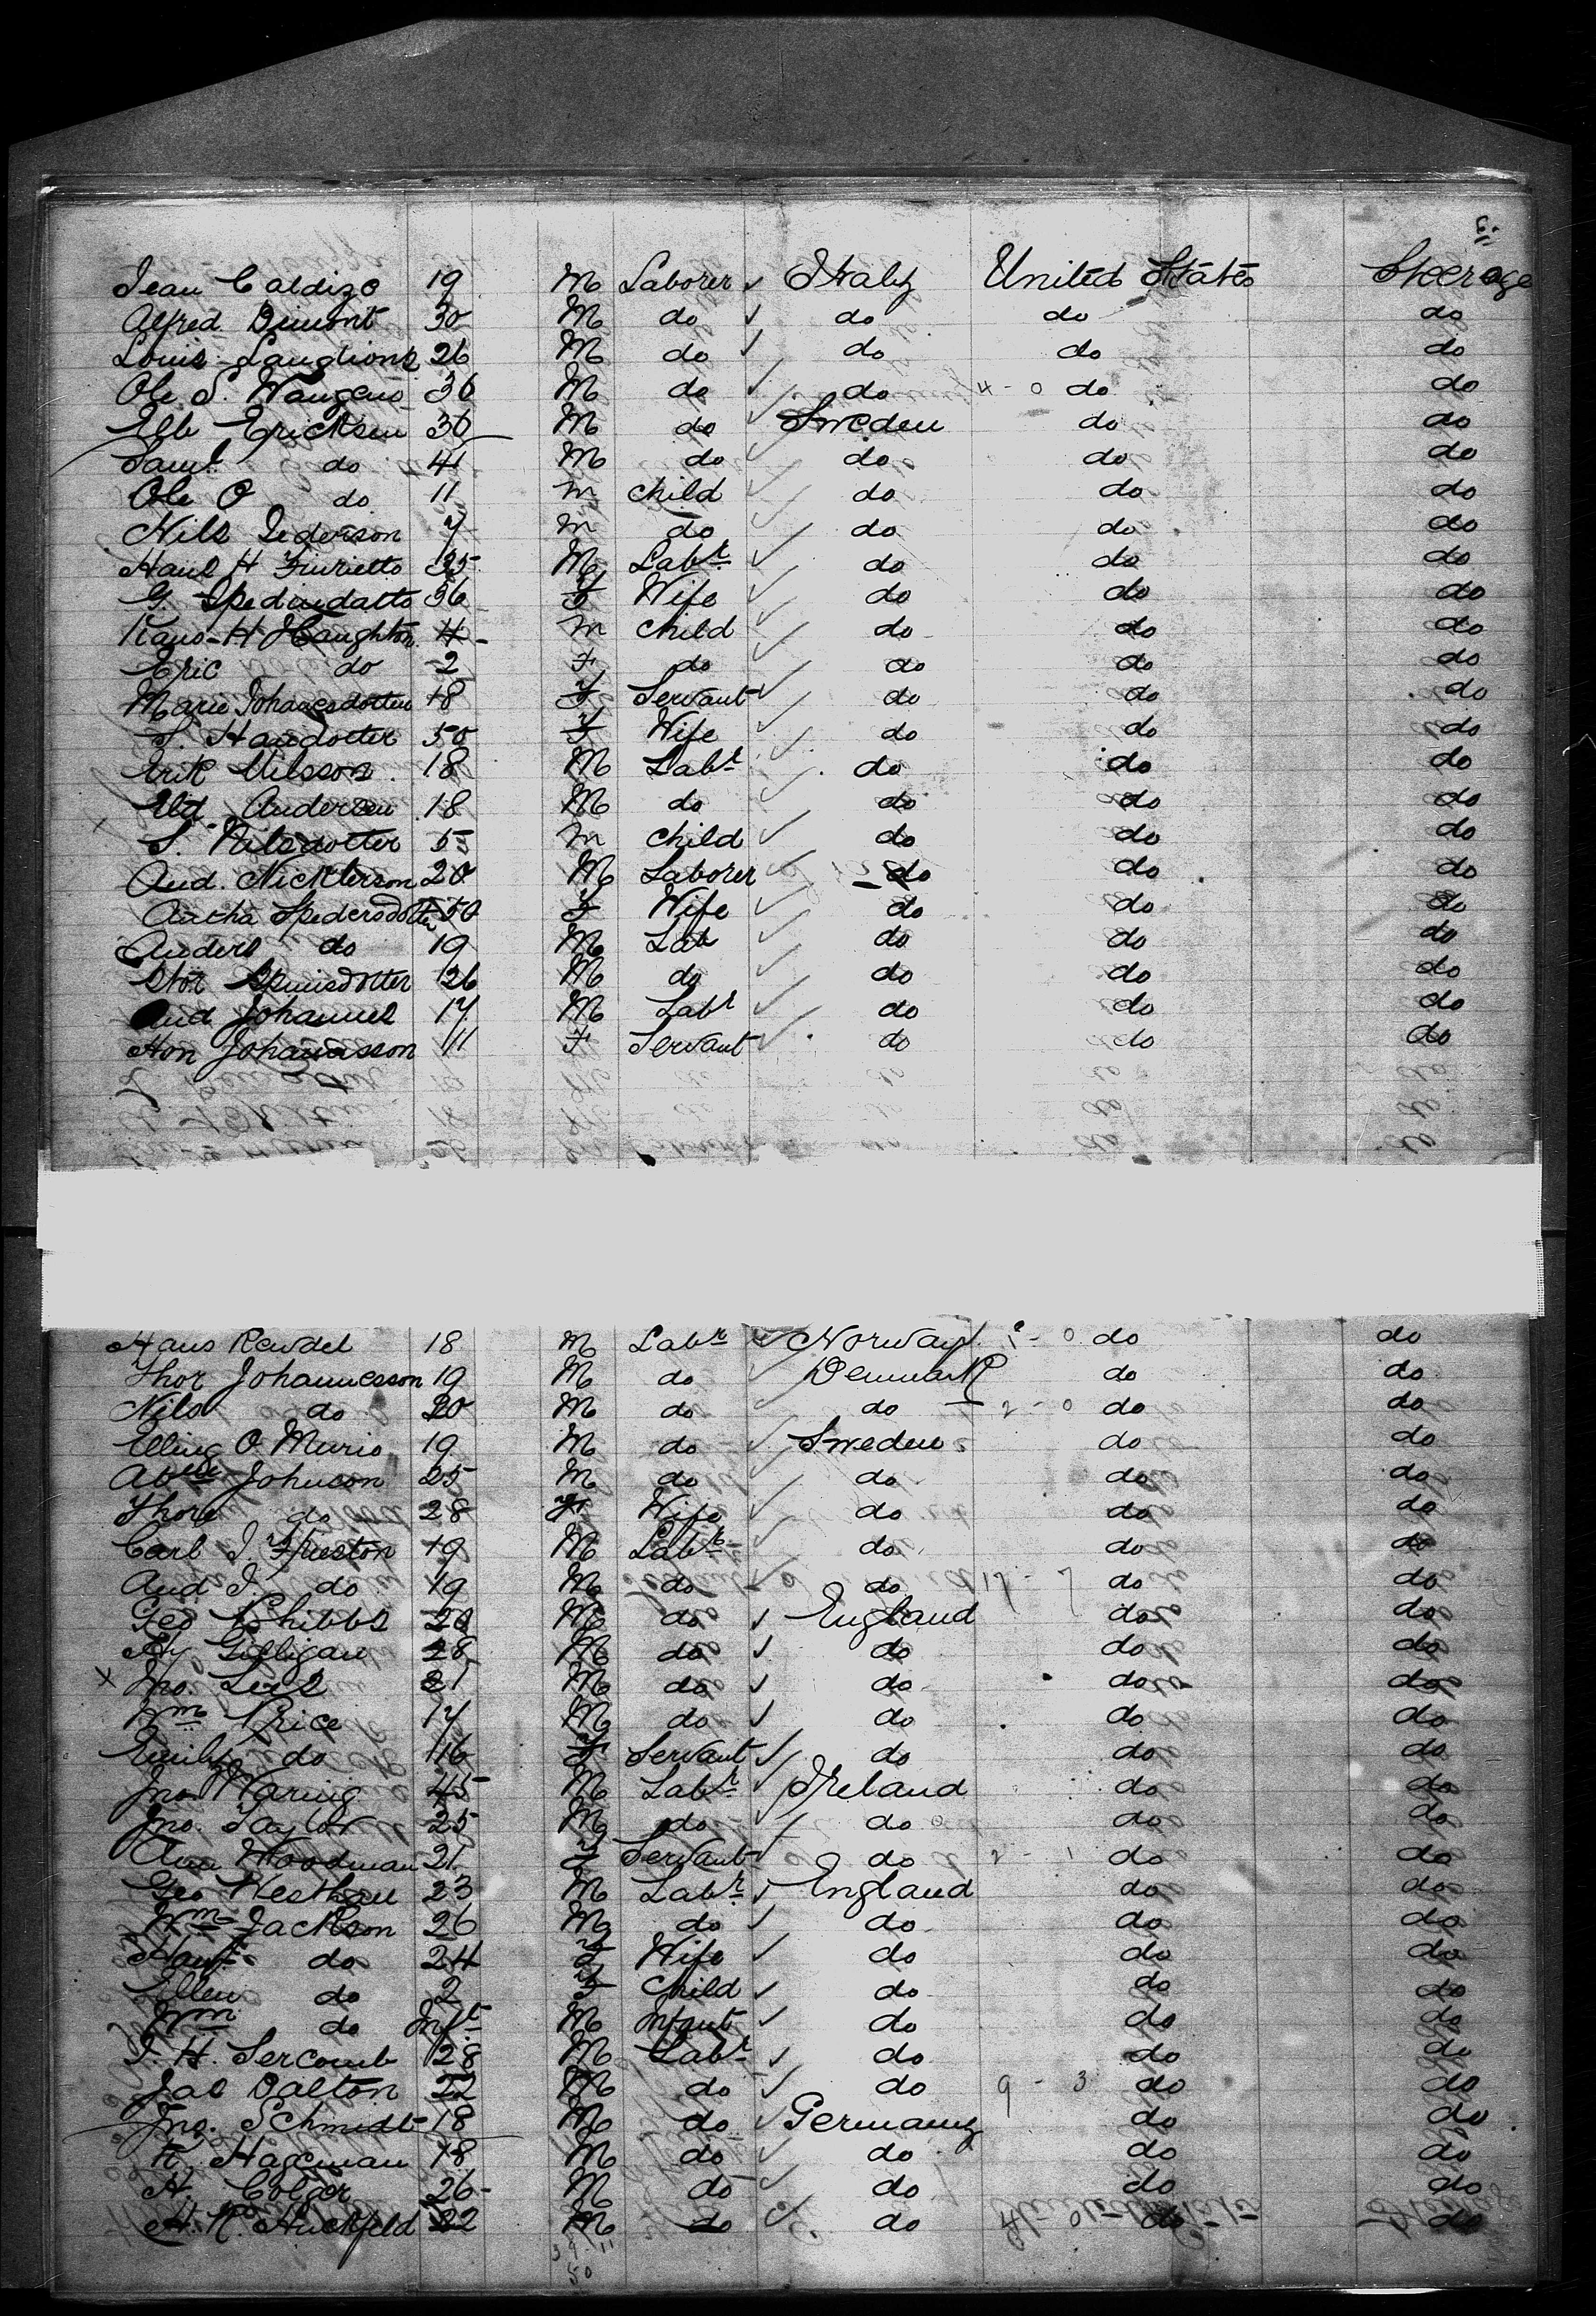 Jean Caldizo 19 M Laborer ✓ Italy United States Steerage
Alfred Dimont 30 M do ✓ do do do
Louis 26 M do ✓ do do do
Ole S. 36 M do ✓ do 4 - 0 do do
Elb Ericksen 30 M do ✓ Sweden do do
Saml do 41 M do ✓ do do do
Ole O do 11 m child ✓ do do do
Nils Pederson 7 m do ✓ do do do
H 35 M Labr ✓ do do do
G. 36 F Wife ✓ do do do
H Haughton 4 m child ✓ do do do
Eric do 2 F do ✓ do do do
Marie 18 F Servant ✓ do do do
S. Handotter 50 F Wife ✓ do do do
Erik Nilsson 18 M Labr ✓ do do do
Andersen 18 M do ✓ do do do
S. Nilsdotter 5 m child ✓ do do do
And. Nickterson 20 M Laborer do do do
50 F Wife ✓ do do do
Anders do 19 M Lab ✓ do do do
26 M do ✓ do do do
And Johannes 17 M Labr ✓ do do do
Hon Johannsson 11 F Servant ✓ do do do
Hans Rewdel 18 M Labr ✓ Norway do do
Thor Johannesson 19 M do ✓ Denmark do do
Nils do 20 M do ✓ do 2 - 0 do do
Elling O Murio 19 M do ✓ Sweden do do
Johnson 25 M do ✓ do do do
Thore do 28 F Wife ✓ do do do
Carl J. 19 M Labr ✓ do do do
And J. do 19 M do do 17 - 7 do do
Geo Phibbs 20 M do ✓ England do do
Hy Gilligan 28 M do ✓ do do do
x Jno. 21 M do ✓ do do do
Wm Price 17 M do ✓ do do do
Emily do 16 F Servant ✓ do do do
Jno Waring 45 M Labr ✓ Ireland do do
Jno. Taylor 25 M do ✓ do do do
Ann Woodman 21 F Servant ✓ do 2 - 1 do do
Geo 23 M Labr ✓ England do do
Wm Jackson 26 M do ✓ do do do
do 24 F Wife ✓ do do do
Ellen do 2 F Child ✓ do do do
Wm do Inft M Infant ✓ do do do
J. H. Sercomb 28 M Labr ✓ do do do
Jas Dalton 22 M do ✓ do 9 - 3 do do
Jno. Schmidt 18 M do ✓ Germany do do
K. Hageman 18 M do ✓ do do do
H. Colger 26 M do ✓ do do do
22 M do ✓ do do do
50